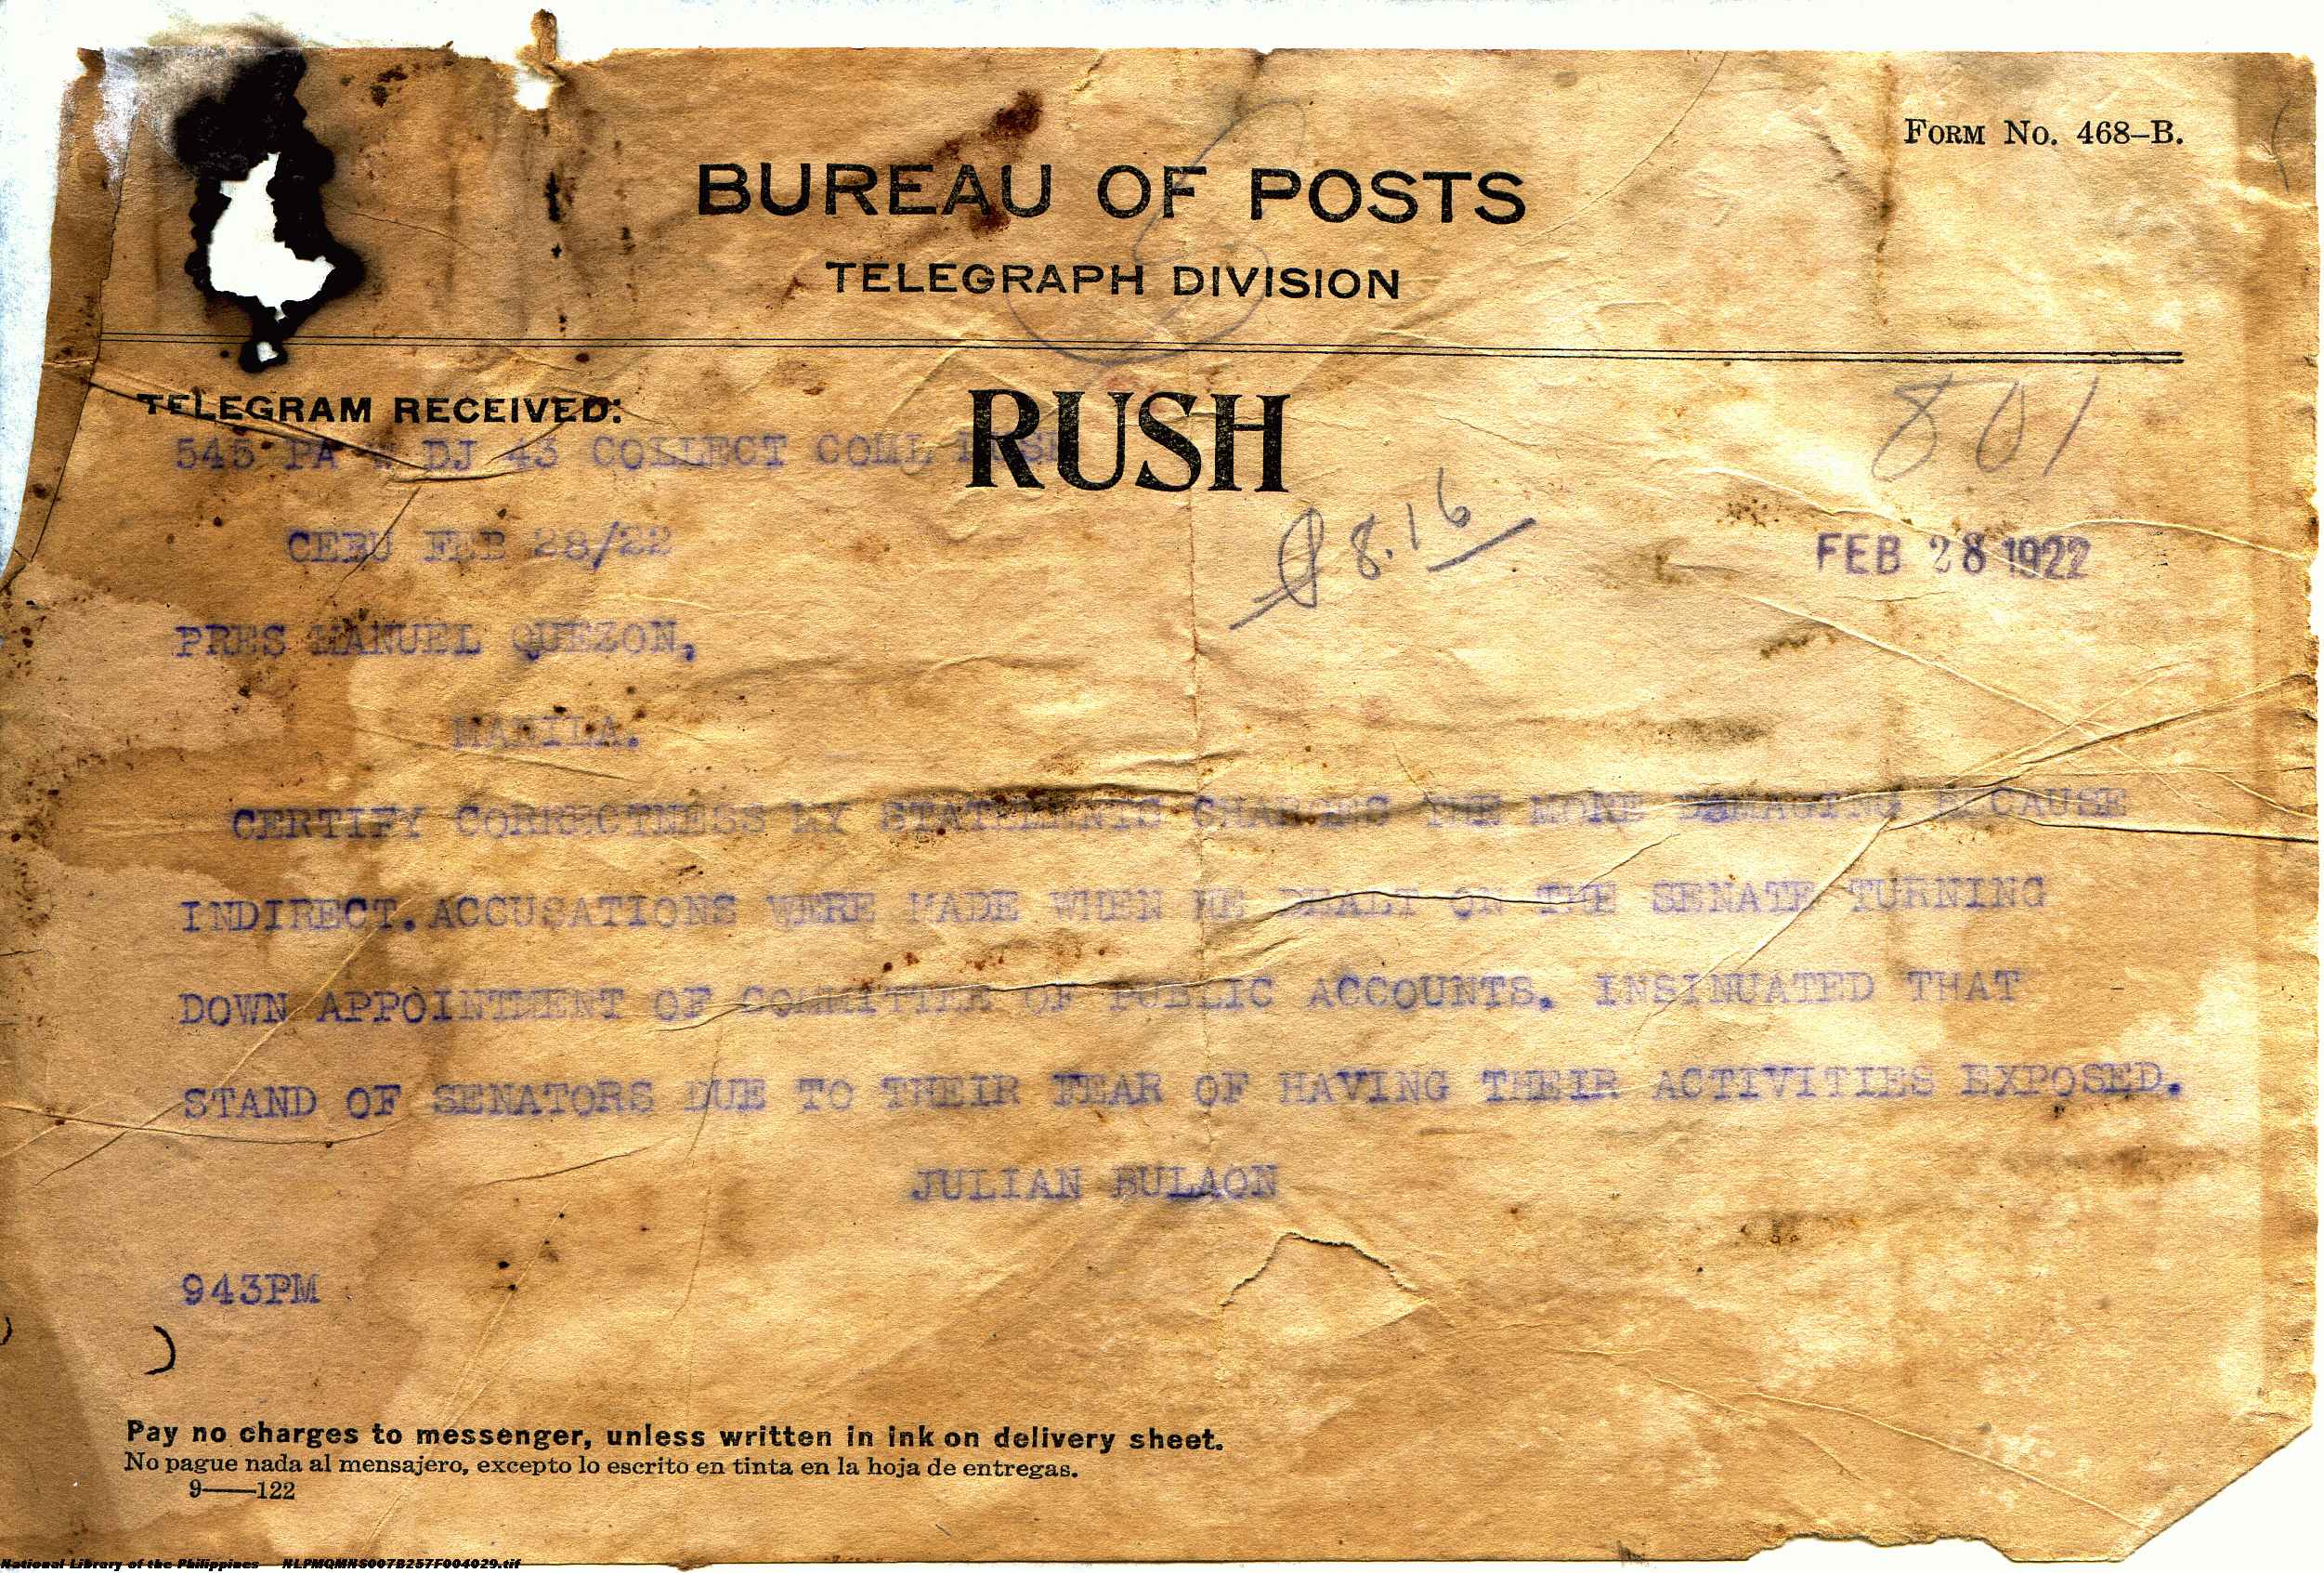 FORM No. 468–B.
BUREAU OF POSTS
TELEGRAPH DIVISION
TELEGRAM RECEIVED:
RUSH
801
545 PA W DJ 43 COLLECT COML RUSH
8.16
CEBU FEB 28/22
FEB 28 1922
PRES MANUEL QUEZON,
MANILA.
CERTIFY CORRECTNESS MY STATEMENTS CHARGES THE MORE DAMAGING BECAUSE
INDIRECT.ACCUSATIONS WERE MADE WHEN HE DEALT ON THE SENATE TURNING
DOWN APPOINTMENT OF COMMITTEE OF PUBLIC ACCOUNTS. INSINUATED THAT
STAND OF SENATORS DUE TO THEIR FEAR OF HAVING THEIR ACTIVITIES EXPOSED.
JULIAN BULAON
943PM
Pay no charges to messenger, unless written in ink on delivery sheet.
No pague nada al mensajero, excepto lo escrito en tinta en la hoja de entregas.
9——122
National Library of the Philippines NLPMQMNS007B257F004029.tif